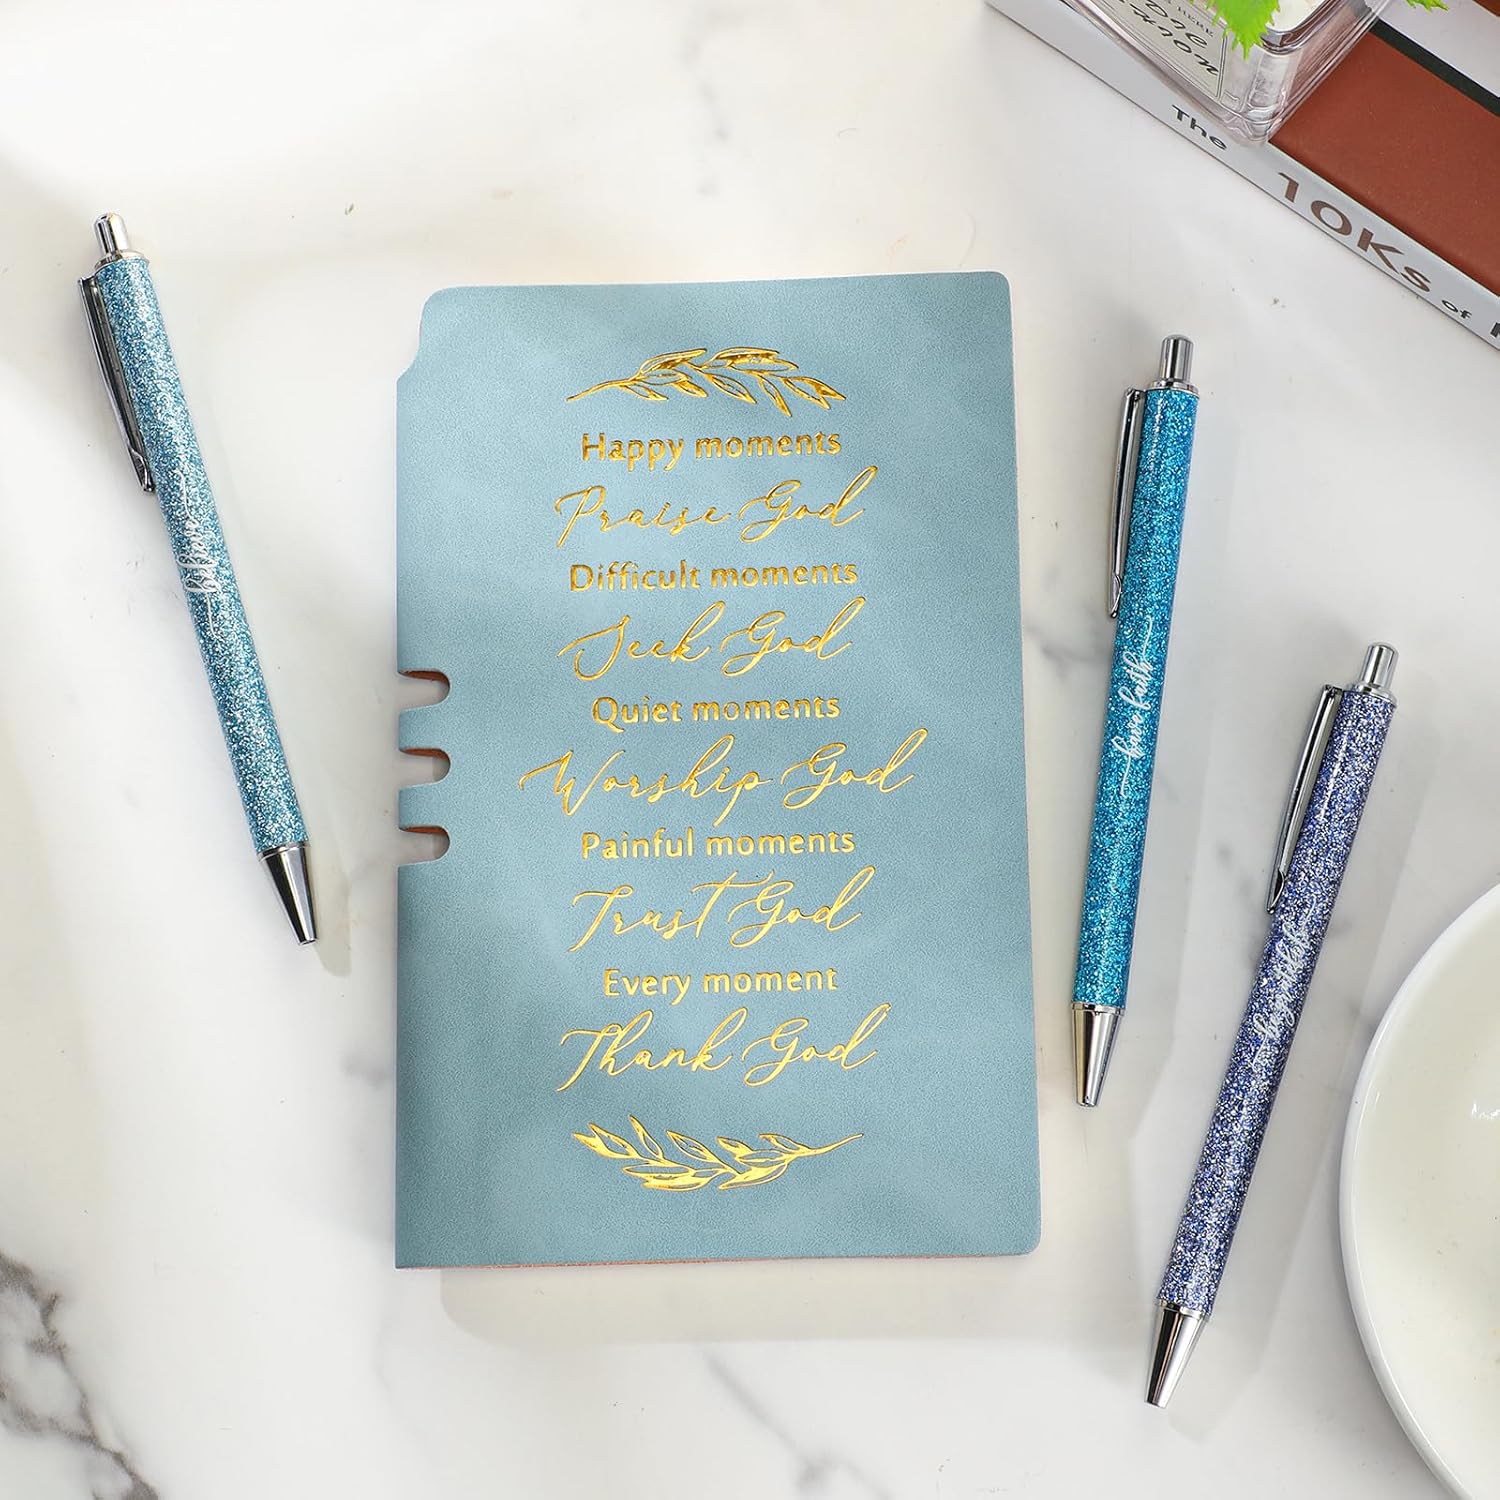 Happy moments
Praise God
Difficult moments
Seek God
Quiet moments
Worship God
Painful moments
Trust God
Every moment
Thank God
believe
have faith
The 10Ks of